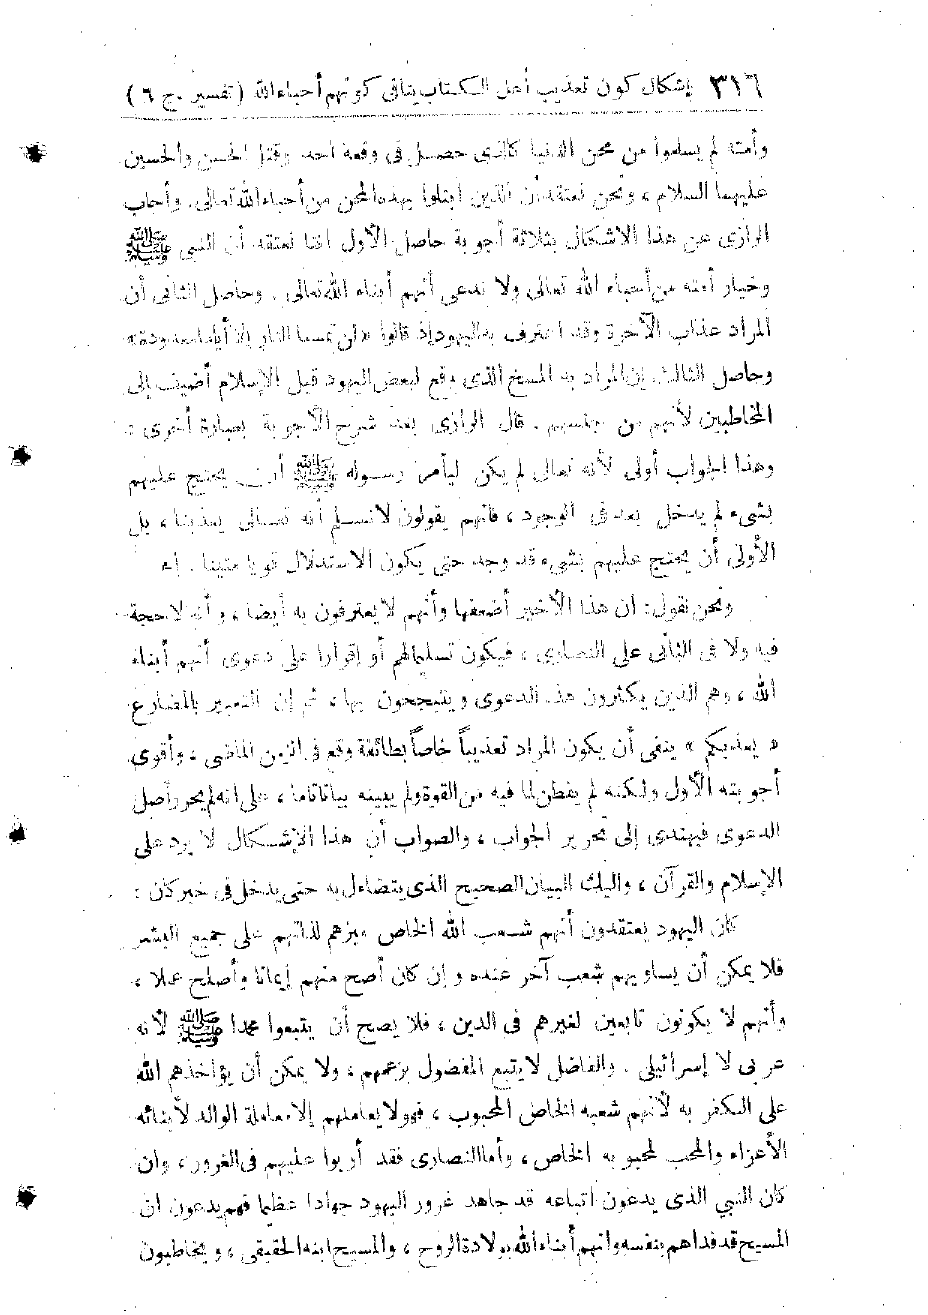 ٣١٦ إشكال كون تعذيب أهل الكتاب ينافى كونهم أحباء الله (تفسير . ج ٦)
وأمته لم يسلموا من محن الدنيا كالذى حصل فى وقعة أحد وقتل الحسن والحسين
عليهما السلام ، ونحن نعتقد أن الذين ابتلوا بهذه المحن من أحباء الله تعالى . وأجاب
الرازى عن هذا الاشكال بثلاثة أجوبة حاصل الأول اننا نعتقد أن النبى ﷺ
وخيار أمته من أحباء الله تعالى ولا ندعى أنهم أبناء الله تعالى . وحاصل الثانى أن
المراد عذاب الآخرة وقد اعترف به اليهود إذ قالوا « لن تمسنا النار إلا أياما معدودة »
وحاصل الثالث إن المراد به المسخ الذى وقع لبعض اليهود قبل الإسلام أضيف إلى
المخاطبين لأنهم من جنسهم . قال الرازى بعد شرح الأجوبة بعبارة أخرى :
وهذا الجواب أولى لأنه تعالى لم يكن ليأمر رسوله ﷺ أن يحتج عليهم
بشىء لم يدخل بعد فى الوجود ، فانهم يقولون لا نسلم أنه تعالى يعذبنا ، بل
الأولى أن يحتج عليهم بشىء قد وجد حتى يكون الاستدلال قويا متينا . اه
ونحن نقول : ان هذا الأخير أضعفها وأنهم لا يعترفون به أيضا ، وأنه لا حجة
فيه ولا فى الثانى على النصارى ، فيكون تسليما لهم أو إقرارا على دعوى أنهم أبناء
الله ، وهم الذين يكثرون هذه الدعوى ويتبجحون بها ، ثم إن التعبير بالمضارع
« يعذبكم » ينفى أن يكون المراد تعذيباً خاصاً بطائفة وقع فى الزمن الماضى ، وأقوى
أجوبته الأول ولكنه لم يفطن لما فيه من القوة ولم يبينه بيانا تاما ، على انه لم يحرر أصل
الدعوى فيهتدى إلى تحرير الجواب ، والصواب أن هذا الإشكال لا يرد على
الإسلام والقرآن ، واليك البيان الصحيح الذى يتضاءل به حتى يدخل فى خبر كان :
كان اليهود يعتقدون أنهم شعب الله الخاص ميزهم لذاتهم على جميع البشر
فلا يمكن أن يساويهم شعب آخر عنده وإن كان أصح منهم إيمانا وأصلح عملا ،
وأنهم لا يكونون تابعين لغيرهم فى الدين ، فلا يصح أن يتبعوا محمدا ﷺ لأنه
عربى لا إسرائيلى . والفاضل لا يتبع المفضول بزعمهم ، ولا يمكن أن يؤاخذهم الله
على الكفر به لأنهم شعبه الخاص المحبوب ، فهو لا يعاملهم إلا معاملة الوالد لأبنائه
الأعزاء والمحب لمحبوبه الخاص ، وأما النصارى فقد أربوا عليهم فى الغرور ، وان
كان النبي الذى يدعون اتباعه قد جاهد غرور اليهود جهادا عظيما فهم يدعون ان
المسيح قد فداهم بنفسه وانهم أبناء الله بولادة الروح ، والمسيح ابنه الحقيقى ، ويخاطبون